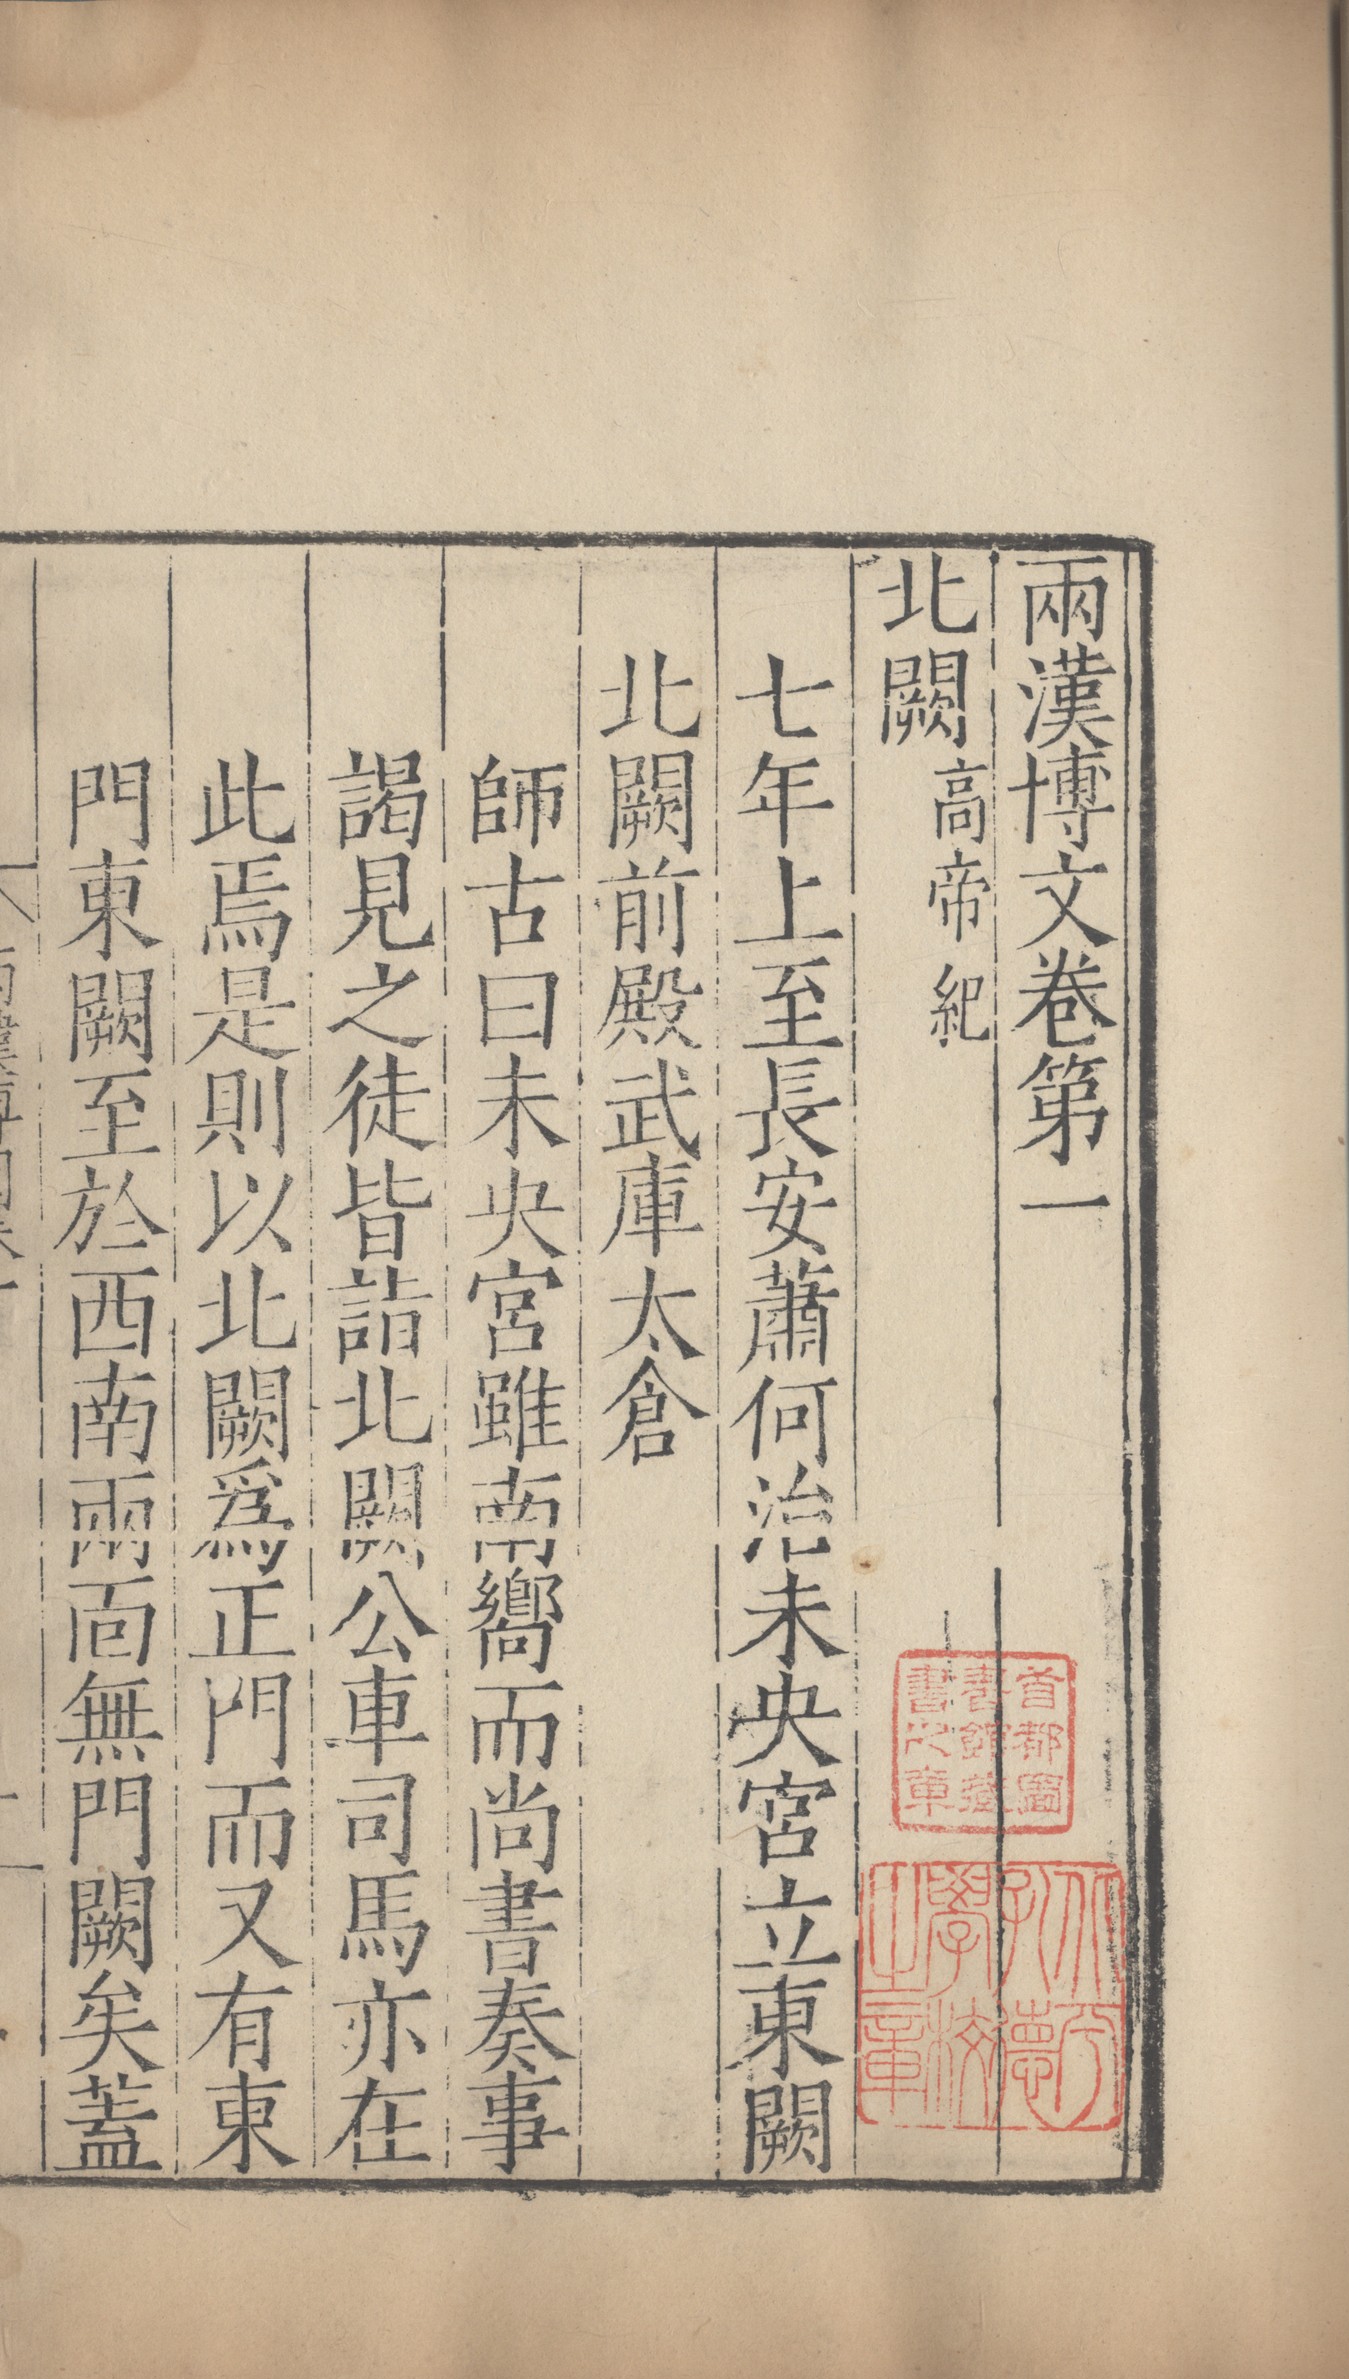 兩漢博文卷第一
北闕高帝紀
七年上至長安蕭何治未央宮立東闕
北闕前殿武庫太倉
師古曰未央宮雖南嚮而尚書奏事
謁見之徒皆詣北闕公車司馬亦在
此焉是則以北闕爲正門而又有東
門東闕至於西南兩面無門闕矣蓋
首都圖
書館藏
書之章